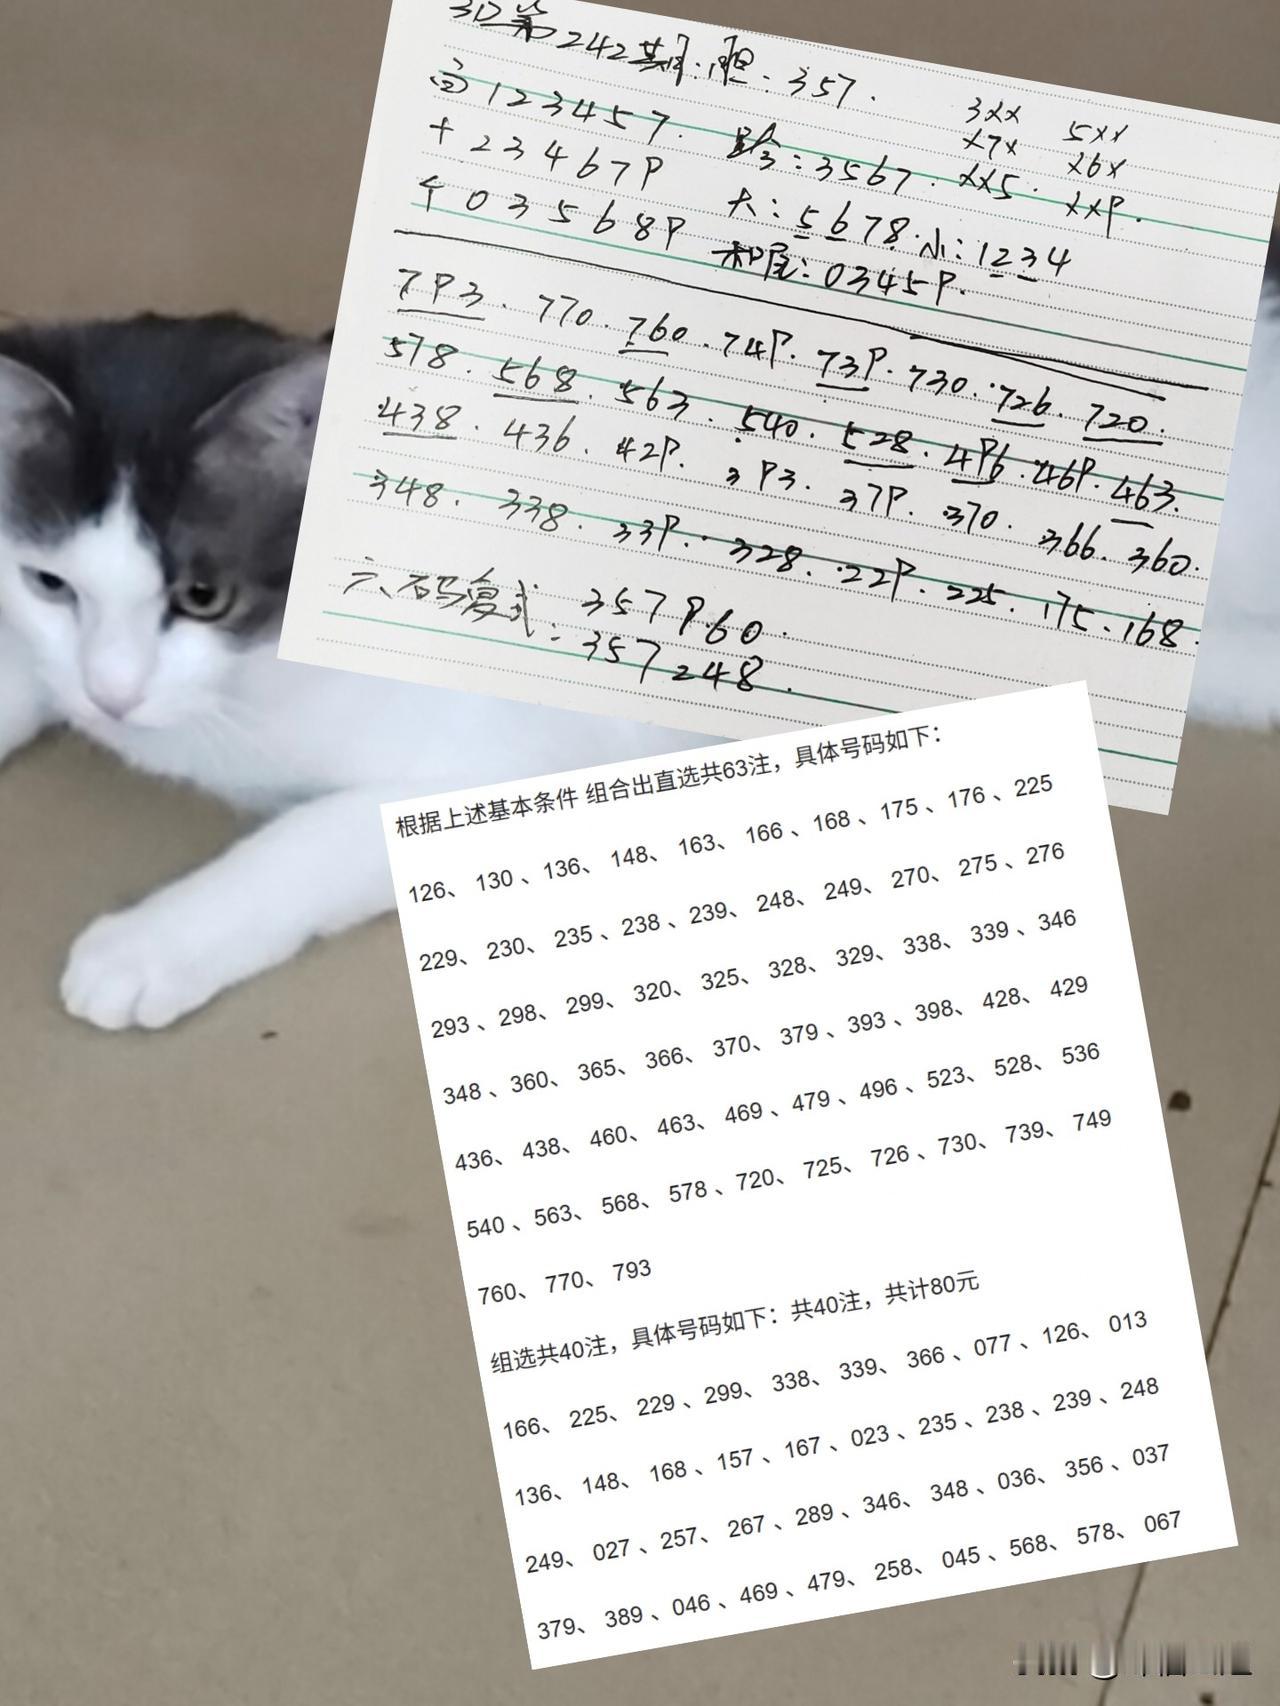 3D第242期.胆.357.
3xx 5xx
百123457. x7x x6x
跨:3567. xx5. xxP.
+23467P
大:5678.小:1234
个035688P
和尾:0345P.
7P3.770.760.74P.73P.730.726.720.
578.568.563.540.528.4P6.46P.463.
438.436.42P.3P3.37P.370.366.360.
348.338.33P.328.22P.225.175.168.
六码复式:357P60.
357248.
根据上述基本条件 组合出直选共63注，具体号码如下：
126、 130 、136、 148、 163、 166 、168 、175 、176 、225
229、 230、 235 、238 、239、 248、 249、 270、 275 、276
293 、298、 299、 320、 325、 328、 329、 338、 339 、346
348 、360、 365、 366、 370、 379 、393 、398、 428、 429
436、 438、 460、 463、 469 、479 、496 、523、 528、 536
540 、563、 568、 578 、720、 725、 726 、730、 739、 749
760、 770、 793
组选共40注，具体号码如下：共40注，共计80元
166、 225、 229 、299、 338、 339、 366 、077 、126、 013
136、 148、 168 、157 、167 、023 、235 、238 、239 、248
249、 027 、257、 267 、289 、346、 348 、036、 356 、037
379、 389 、046 、469 、479、 258、 045 、568、 578、 067